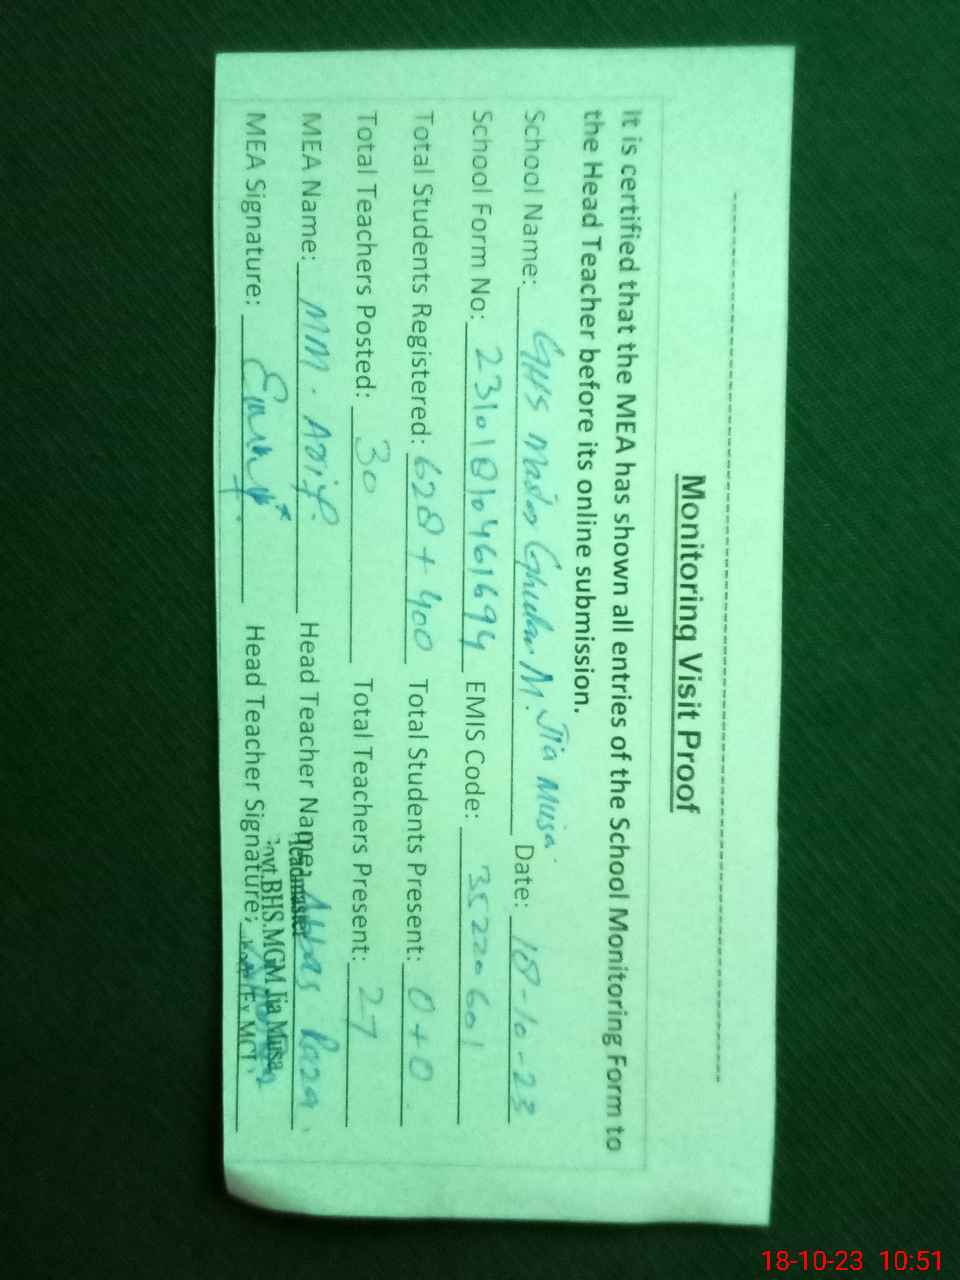 Monitoring Visit Proof
It is certified that the MEA has shown all entries of the School Monitoring Form to
the Head Teacher before its online submission.
School Name: GHS M. Jia Musa Date: 18-10-23
School Form No: 2310181046169 EMIS Code: 35220601
Total Students Registered: 628 + 400 Total Students Present: 0 + 0
Total Teachers Posted: 30 Total Teachers Present: 27
MEA Name: MM. Asif Head Teacher Name: Abbas Raza
MEA Signature: Head Teacher Signature:
Headmaster
Govt.BHS.MGM Jia Musa
18-10-23 10:51